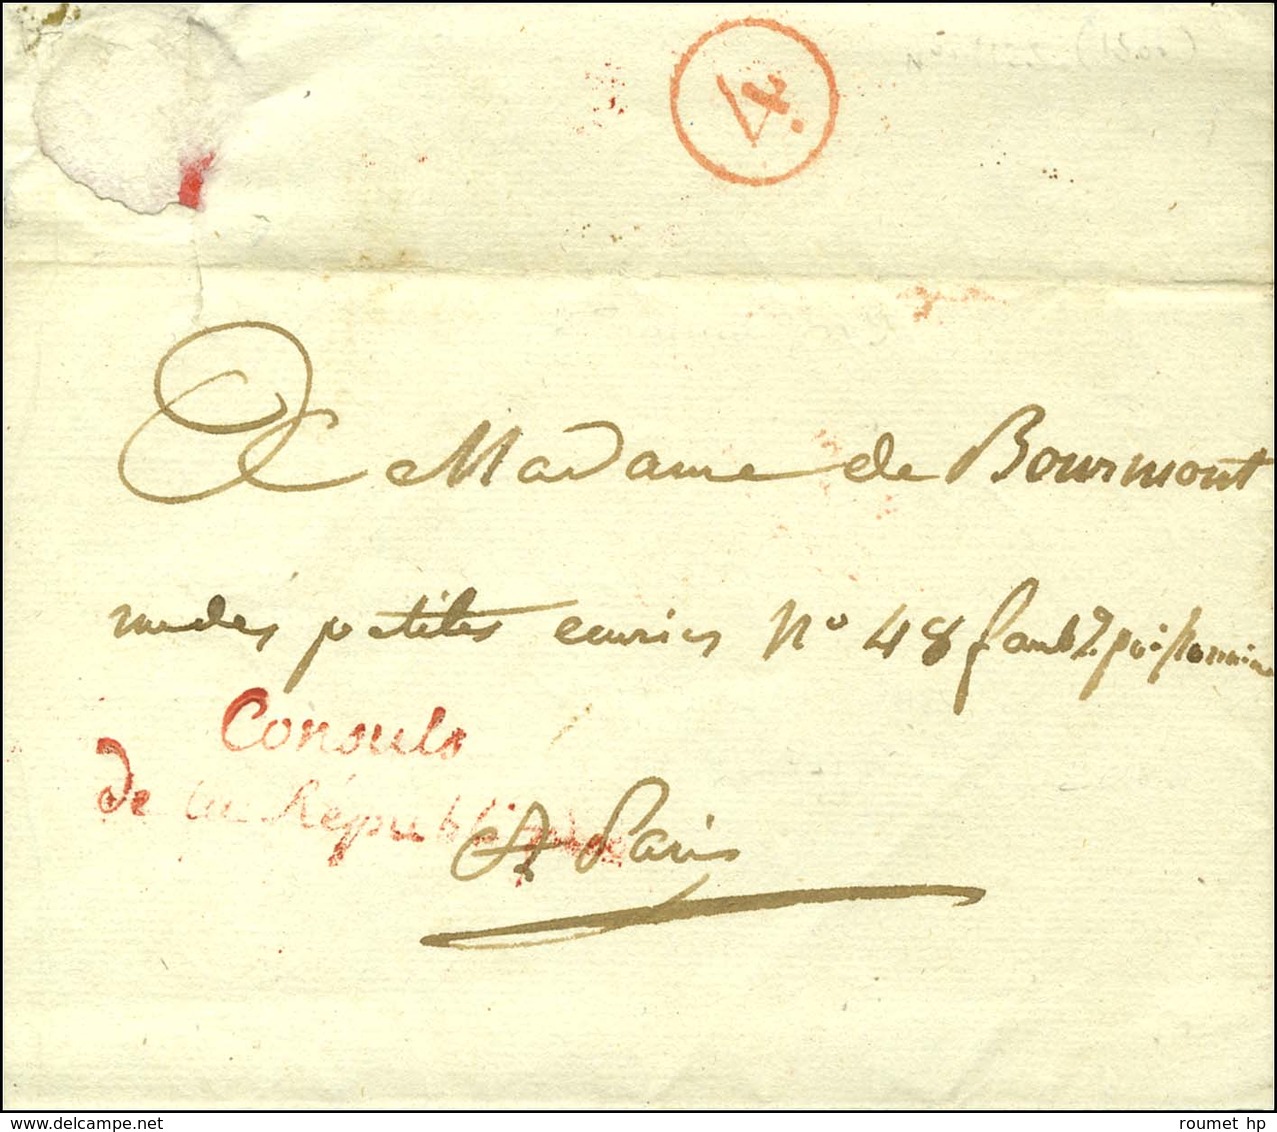 4.
A Madame de Bourmont
rue des petites ecuries No 48 faubg poissonniere
Consuls
de la République
A Paris
www.delcampe.net
roumet hp